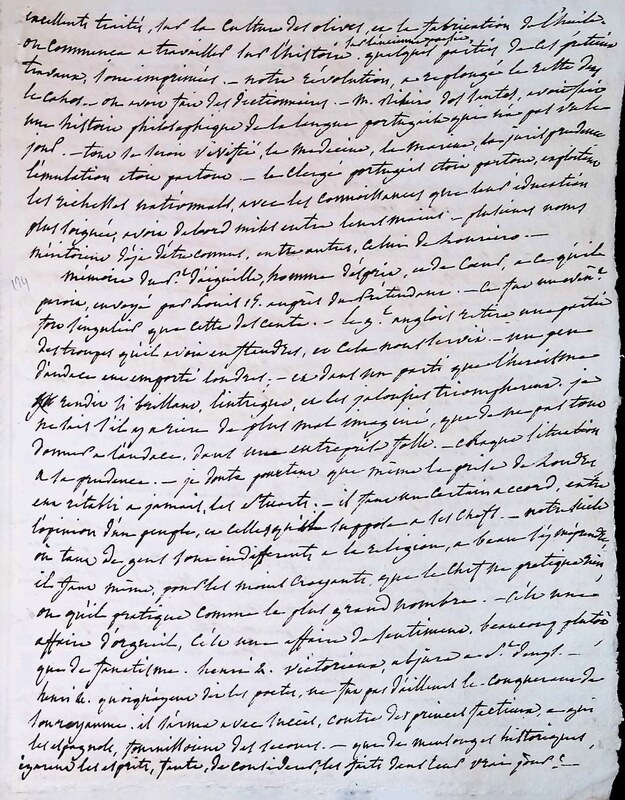 excellents traités, sur la culture des olives, et la fabrication de l'huile.
on commença a travailler sur l'histoire, quelques parties, de ces précieux
travaux, sont imprimées. - notre révolution, a replongé le reste dans
le cahos. - on avoit fait des dictionnaires. - M. Ribeiro dos Santos, avoit fait
une histoire philosophique de la langue portugaise que n'a pas vu le
jour. - tout se seroit vivifié, la médecine, la marine, la jurisprudence
l'émulation etoit partout. - le clergé portugais etoit partout, exploitant
les richesses nationnales, avec les connoissances que leur éducation
plus soignée, avoit d'abord mises entre leurs mains. - plusieurs noms
méritoient déjà d'être connus, entre autres, celui de Loureiro. -
Mémoire du Sr. d'aiguille, homme d'esprit, et de coeur, a ce qu'il
paroit, envoyé par Louis 15. auprès du Prétendant. - Ce fut un évènt.
fort singulier que cette descente. - le gt. anglois retira une partie
des troupes qu'il avoit en flandres, et cela nous servit. - un peu
d'audace eut emporté londres. - et dans un parti que l'heroisme
rendoit si brillant, l'intrigue, et les jalousies triompherent. je
ne sais s'il y a rien de plus mal imaginé, que de ne pas tout
donner a l'audace, dans une entreprise folle. - chaque situation
a sa prudence. - je doute pourtant que même la prise de Londres
eut rétabli a jamais, les Stuarts. - il faut un certain accord, entre
l'opinion d'un peuple, et celle qu'il suppose a ses chefs. - notre siècle
où tant de gens sont indifférents a la religion, a beau s'y méprendre
il faut même, pour les moins croyants, que le chef ne pratique rien,
ou qu'il pratique comme le plus grand nombre. - C'est une
affaire d'orgueil, c'est une affaire de sentiment, beaucoup plutôt
que de fanatisme. henri 4. victorieux, abjura a St. denys. -
henri 4. quoiqu'ayent dit les poetes, ne fut pas d'ailleurs le conquerant de
son royaume. il s'arma avec succès, contre des princes factieux, a qui
les espagnols, fournissoient des secours. - que de mensonges historiques,
égarent les esprits, faute, de considérer, les faits dans leur vrai jour. -